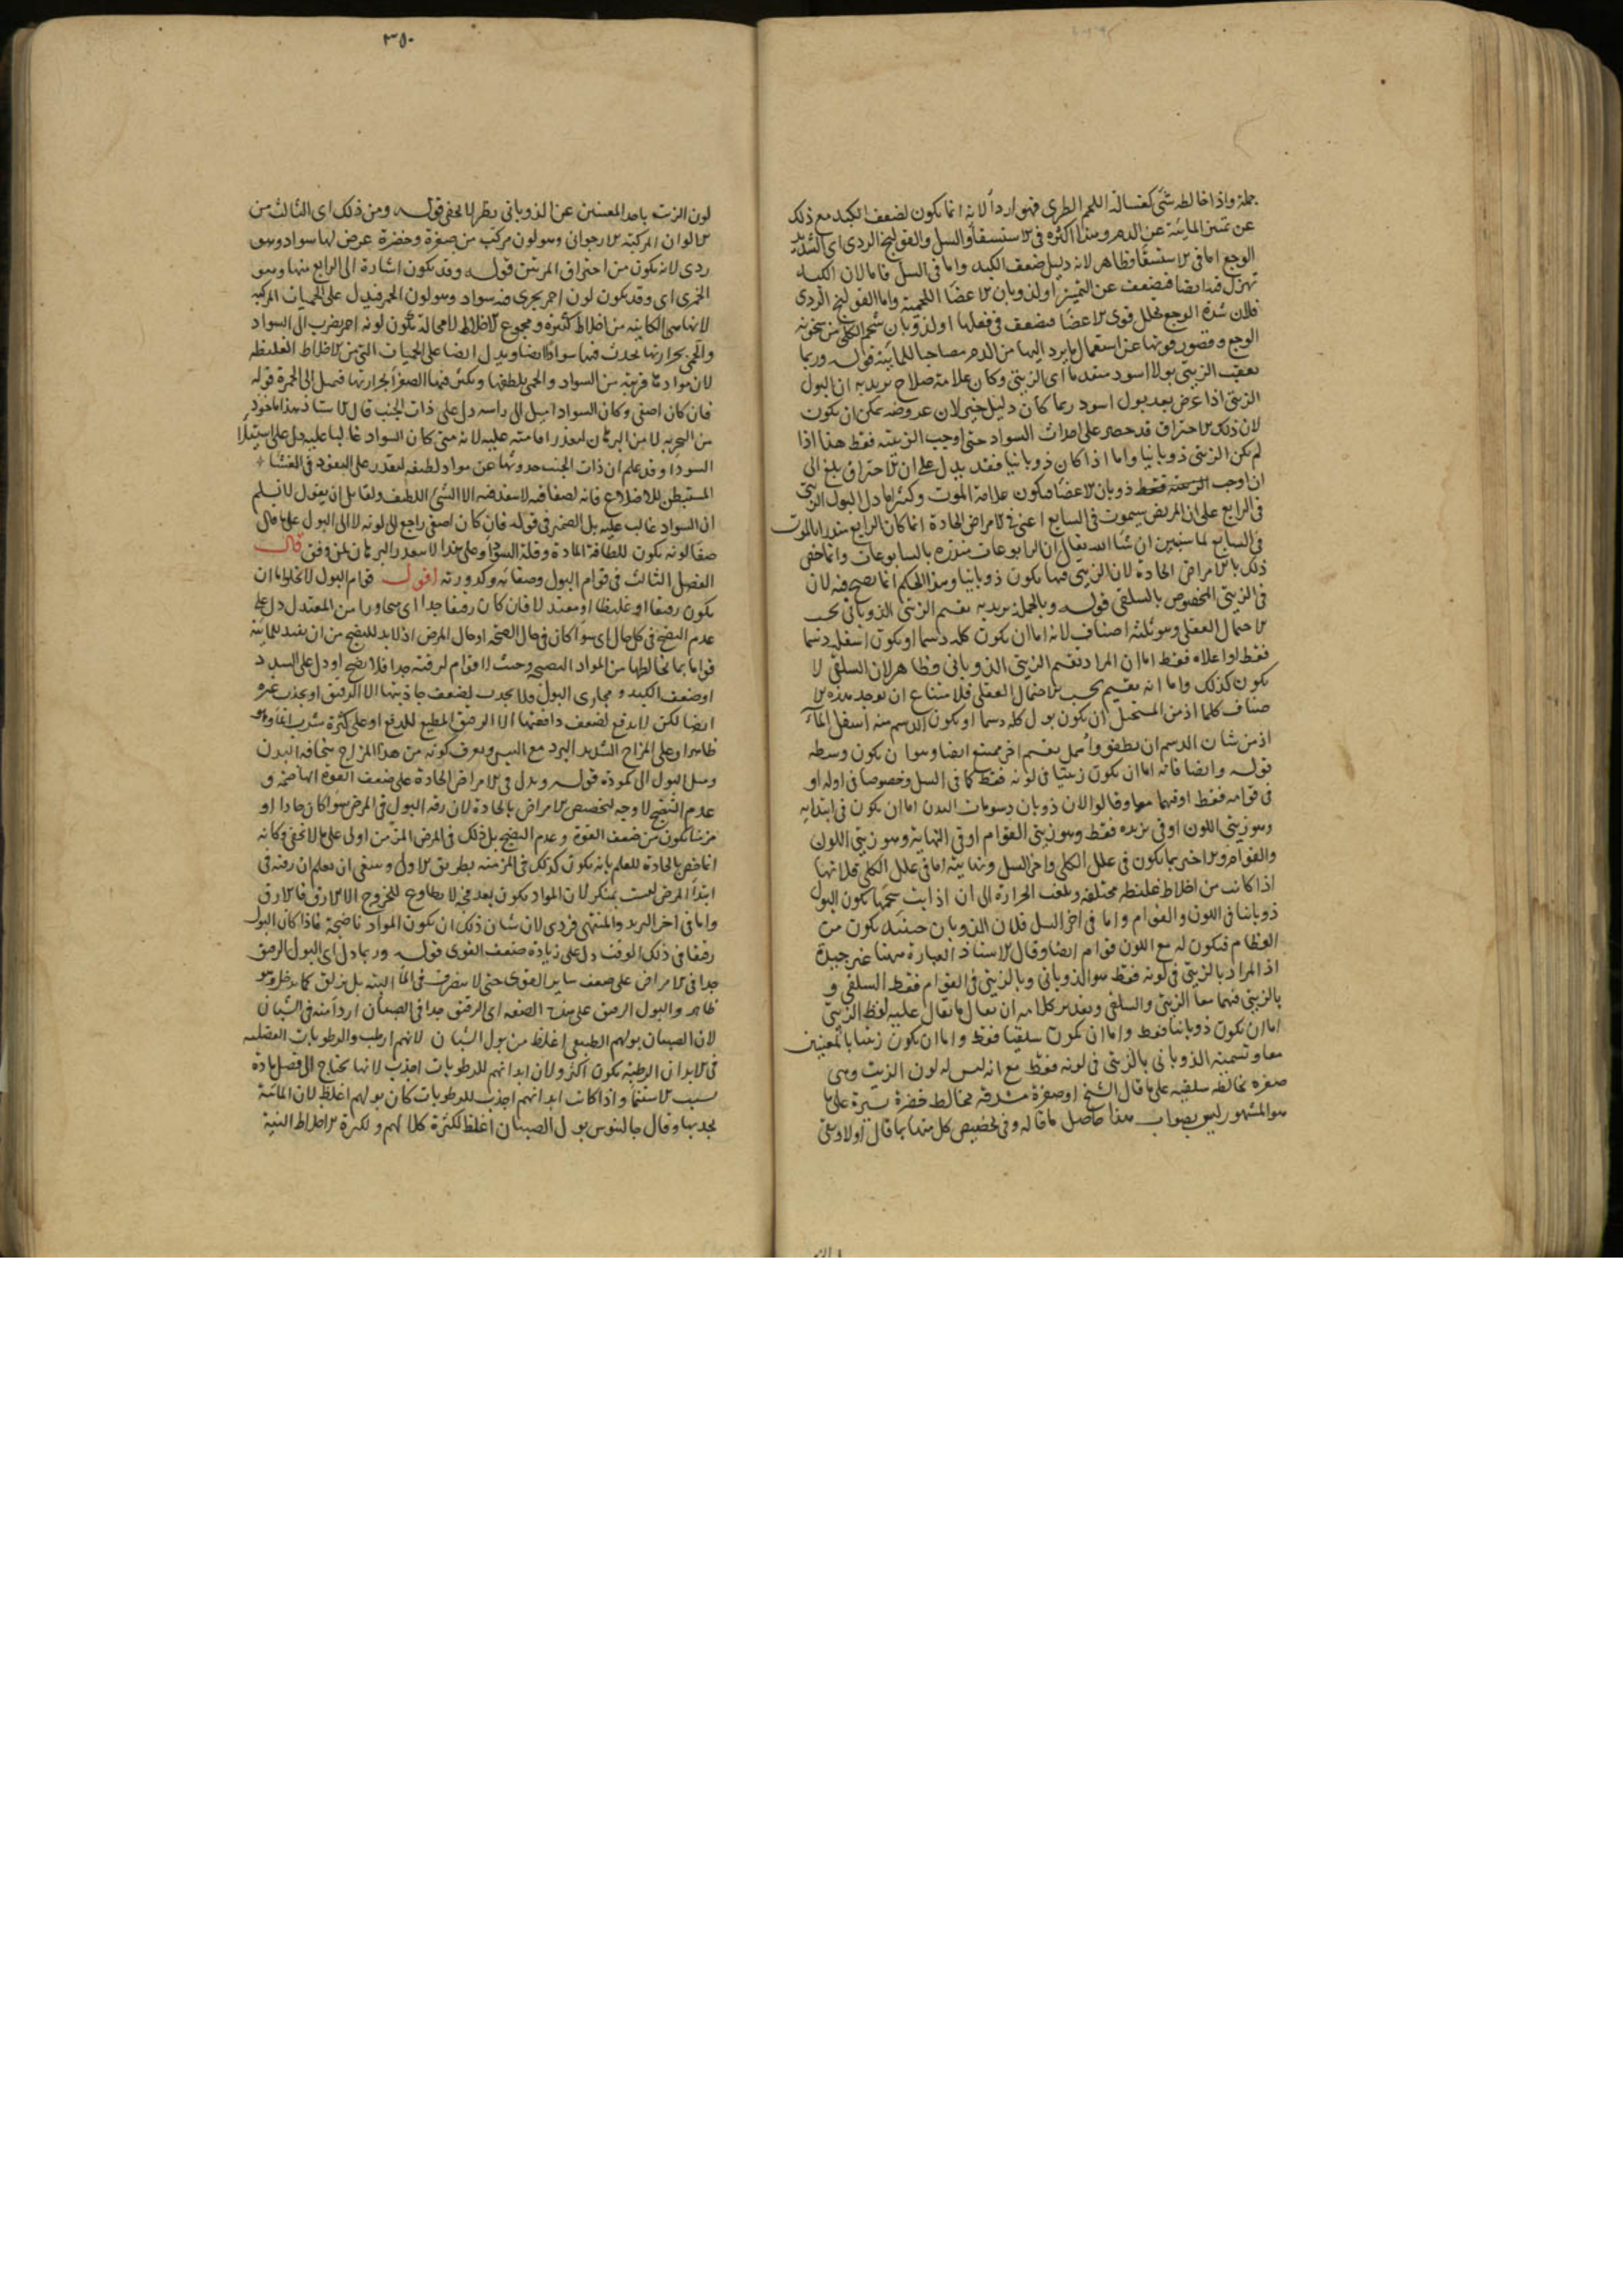 جملة واذا خالطه شئ كغسالة اللحم الطرى فهو اردأ لانه انما يكون لضعف الكبد مع ذلك
عن تميز المائية عن الدم وهذا اكثره فى الاستسقا والسل والقولنج الردى اى الشديد
الوجع اما فى الاستسقا فظاهر لانه دليل ضعف الكبد واما فى السل فاما لان الكبد
تهزل فيه ايضا فيضعف عن التميز او لذوبان الاعضا اللحمية واما القولنج الردى
فلان شدة الوجع تحلل قوى الاعضا فيضعف فى فعلها او لذوبان شحم الكلى من سخونة
الوجع وقصور قوتها عن استعمال ما يرد اليها من الدم مصاحبا للمائية قوله وربما
يعقب الزيتى بولا اسود متقدما اى الزيتى وكان علامة صلاح يريد به ان البول
الزيتى اذا عرض بعد بول اسود ربما كان دليل خير لان عروضه يمكن ان يكون
لان ذلك الاحتراق قد حصر على احداث السواد حتى اوجب الزيتية فقط هذا اذا
لم يكن الزيتى ذوبانيا واما اذا كان ذوبانيا فقد يدل على ان الاحتراق بلغ الى
ان اوجب ذوبان الاعضا فيكون علامة الموت وكثيرا ما دل البول الزيتى
فى الرابع على ان المريض سيموت فى السابع اعنى فى الامراض الحادة انما كان الرابع منذرا بالموت
فى السابع لما سيبين ان شا الله تعالى ان الرابوعات منذرة بالسابوعات وانما خص
ذلك بالامراض الحادة لان الزيتى فيها يكون ذوبانيا وهذا الحكم انما يصح فيه لان
فى الزيتى المخصوص بالسلقى قوله وبالجملة يريد به تقسيم الزيتى الذوبانى بحسب
الاحتمال العقلى وهو ثلثة اصناف لانه اما ان يكون كله دسما او يكون اسفله دسما
فقط او اعلاه فقط اما ان المراد تقسيم الزيتى الذوبانى فظاهر لان السلقى لا
يكون كذلك واما انه تقسيم بحسب الاحتمال العقلى فلامتناع ان توجد هذه الا
صناف كلها اذ من المستحيل ان يكون بول كله دسما او يكون الدسم منه اسفل الماء
اذ من شان الدسم ان يطفو واهمل تقسيم اخر ممتنع ايضا وهو ان يكون وسطه
قوله وايضا فانه اما ان يكون زيتيا فى لونه فقط كما فى السل وخصوصا فى اوله او
فى قوامه فقط او فيهما معا وقالوا لان ذوبان دسومات البدن اما ان يكون فى ابتدايه
وهو زيتى اللون او فى تزيده فقط وهو زيتى القوام او فى النهاية وهو زيتى اللون
والقوام والاخير بما يكون فى علل الكلى واخر السل ونهايته اما فى علل الكلى فلانها
اذا كانت من اخلاط غليظة مختلفة وبلغت الحرارة الى ان اذابت شحمها يكون البول
ذوبانيا فى اللون والقوام واما فى اخر السل فلان الذوبان حينئذ يكون من
العظام فيكون له مع اللون قوام ايضا وقال الاستاد العبارة ههنا غير جيدة
اذ المراد بالزيتى فى لونه فقط هو الذوبانى وبالزيتى فى القوام فقط السلقى و
بالزيتى فيهما معا الزيتى والسلقى وتقدير كلامه ان يقال ما يقال عليه لفظ الزيتى
اما ان يكون ذوبانيا فقط واما ان يكون سلقيا فقط واما ان يكون زيتيا بالمعنيين
معا وتسمية الذوبانى بالزيتى فى لونه فقط مع انه ليس له لون الزيت وهى
صفرة تخالطه سلقية على ما قال الشيخ او صفرة مشرقة مخالط خضرة يسيرة على ما
هو المشهور ليس بصواب هذا حاصل ما قاله وفى تخصيص كل منهما بما قال اولا وبقى
٣٥٠
لون الزيت باحد المعنيين عن الذوبانى نظر لا يخفى قوله ومن ذلك اى الثالث من
الالوان المركبة الارجوانى وهو لون مركب من صفرة وحضرة عرض لها سواد وهو
ردى لانه يكون من احتراق المرتين قوله وقد يكون اشارة الى الرابع منها وهو
الخمرى اى وقد يكون لون احمر يجرى فيه سواد وهو لون الخمر فيدل على الحميات المركبة
لانها هى الكاينة من اخلاط كثيرة ومجموع الاخلاط لا محالة يكون لونه احمر يضرب الى السواد
والحمى بحرارتها يحدث فيها سوادا ايضا ويدل ايضا على الحميات التى من الاخلاط الغليظة
لان موادها قريبة من السواد والحمى يلطفها ويكثر فيها الصفرا بحرارتها فيميل الى الحمرة قوله
فان كان اصفى وكان السواد اميل الى راسه دل على ذات الجنب قال الاستاذ هذا ماخوذ
من التجربة لا من البرهان لتعذر اقامته عليه لانه متى كان السواد غالبا عليه دل على استيلا
السودا وقد علم ان ذات الجنب حدوثها عن مواد لطيفة لتقدر على النفوذ فى الغشا
المستبطن للاضلاع فانه لصفاقته لا ينفذ فيه الا الشئ اللطيف ولقايل ان يقول لا نسلم
ان السواد غالب عليه بل الضمير فى قوله فان كان اصفى راجع الى لونه لا الى البول على ما قال
صفا لونه يكون للطافة المادة وقلة السودا وعلى هذا لا يتعذر البرهان لمن وفق قال
الفصل الثالث فى قوام البول وصفائه وكدورته اقول قوام البول لا يخلو اما ان
يكون رقيقا او غليظا او معتدلا فان كان رقيقا جدا اى متجاوزا من المعتدل دل على
عدم النضج فى كل حال اى سوا كان فى حال الصحة او حال المرض اذ لا بد للنضج من ان يفيد للمائية
قواما بما يخالطها من المواد النضيجة وحيث لا قوام لرقته جدا فلا نضج او دل على السدد
او ضعف الكبد ومجارى البول فلا يجذب لضعف جاذبتها الا الرقيق او يجذب غيره
ايضا لكن لا يدفع لضعف دافعتها الا الرقيق المطيع للدفع او على كثرة شرب الما وهو
ظاهر او على المزاج الشديد البرد مع اليبس ويعرف كونه من هذا المزاج بنحافة البدن
وميل البول الى كمودة قوله ويدل فى الامراض الحادة على ضعف القوة الهاضمة و
عدم النضج لا وجه لتخصيص الامراض بالحادة لان رقة البول فى المرض سوا كان حادا او
مزمنا يكون من ضعف القوة وعدم النضج بل ذلك فى المرض المزمن اولى على ما لا يخفى وكانه
انما خص بالحادة للعلم بانه يكون كذلك فى المزمنة بطريق الاول وينبغى ان يعلم ان رقته فى
ابتدأ المرض ليست بمنكر لان المواد يكون بعد فجة لا يطاوع للخروج الا الارق فالارق
واما فى اخر التزيد والمنتهى فردى لان شان ذلك ان يكون المواد ناضجة فاذا كان البول
رقيقا فى ذلك الوقت دل على زيادة ضعف القوى قوله وربما دل اى البول الرقيق
جدا فى الامراض على ضعف ساير القوى حتى لا يتصرف فى الما البتة بل يزلق كما يدخل وهو
ظاهر والبول الرقيق على هذه الصفة اى الرقيق جدا فى الصبيان اردأ منه فى الشبان
لان الصبيان بولهم الطبيعى اغلظ من بول الشبان لانهم ارطب والرطوبات الفضلية
فى الابدان الرطبة يكون اكثر ولان ابدانهم للرطوبات اجذب لانها يحتاج الى فضل مادة
بسبب الاستنما واذا كانت ابدانهم اجذب للرطوبات كان بولهم اغلظ لان المائية
يجذبها وقال جالينوس بول الصبيان اغلظ لكثرة كلالهم ولكثرة الاخلاط النية